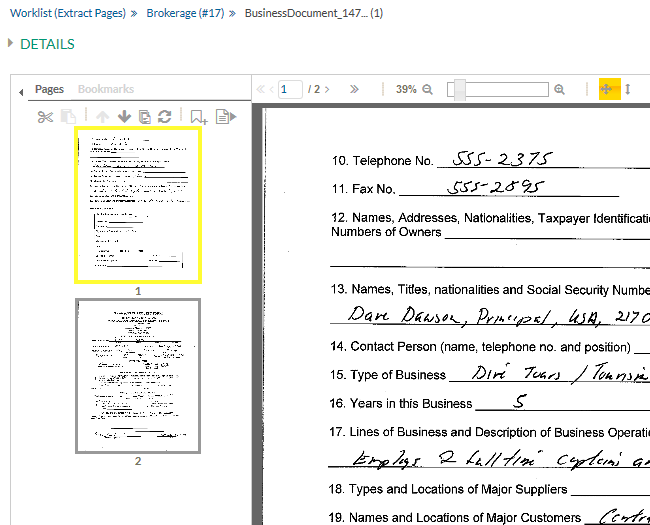 Worklist (Extract Pages) » Brokerage (#17) » BusinessDocument_147... (1)
DETAILS
Pages Bookmarks
1 / 2 39%
10. Telephone No. 555-2375
11. Fax No. 555-2895
12. Names, Addresses, Nationalities, Taxpayer Identificati
Numbers of Owners
13. Names, Titles, nationalities and Social Security Numbe
Dave Dawson, Principal, USA, 2170
14. Contact Person (name, telephone no. and position)
15. Type of Business Dive Tours / Tourism
16. Years in this Business 5
17. Lines of Business and Description of Business Operati
Employs 2 full time captains an
18. Types and Locations of Major Suppliers
19. Names and Locations of Major Customers Contr
1
2